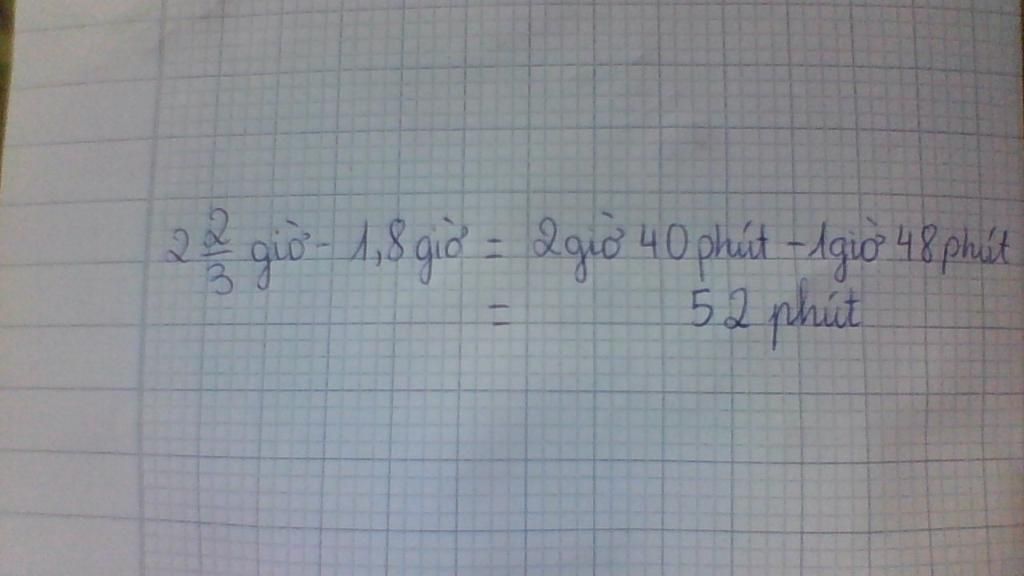 2 2/3 giờ - 1,8 giờ = 2 giờ 40 phút - 1 giờ 48 phút
= 52 phút